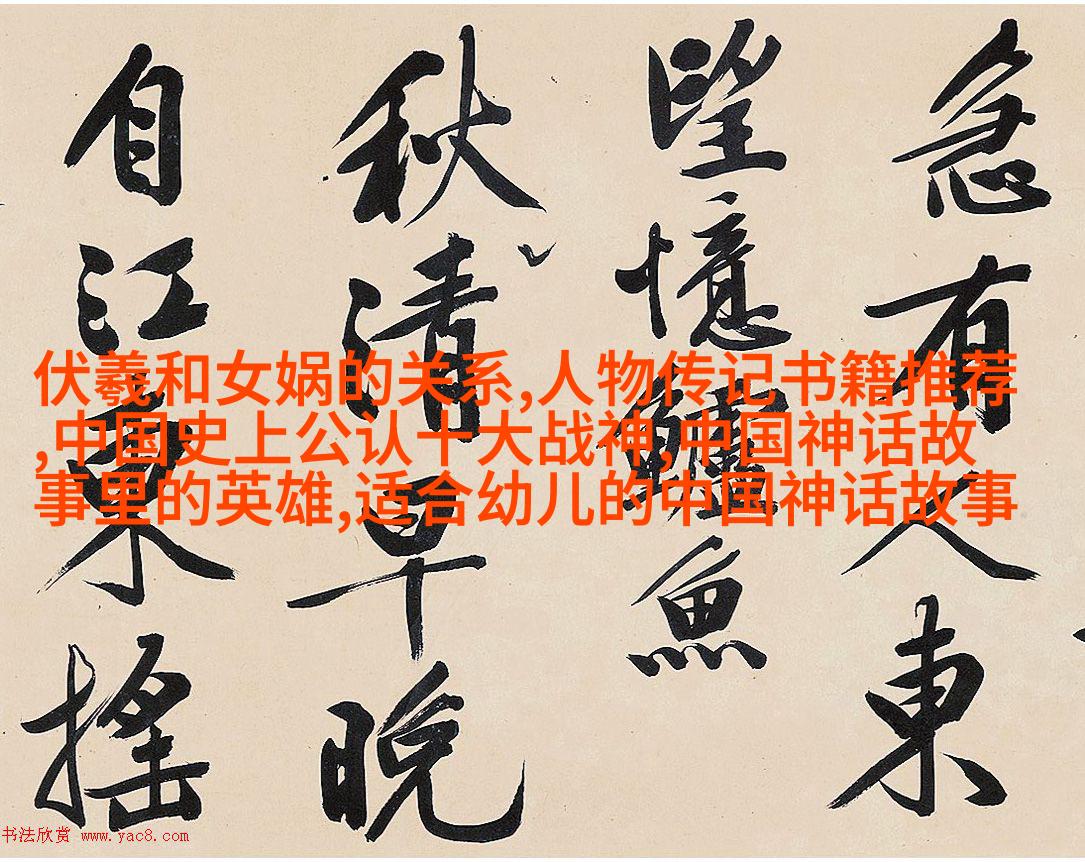 急有人東
望憶鱸魚
秋清早晚
自江東搖
伏羲和女娲的关系,人物传记书籍推荐
,中国史上公认十大战神,中国神话故
事里的英雄,适合幼儿的中国神话故事
书法欣赏 www.yac8.com